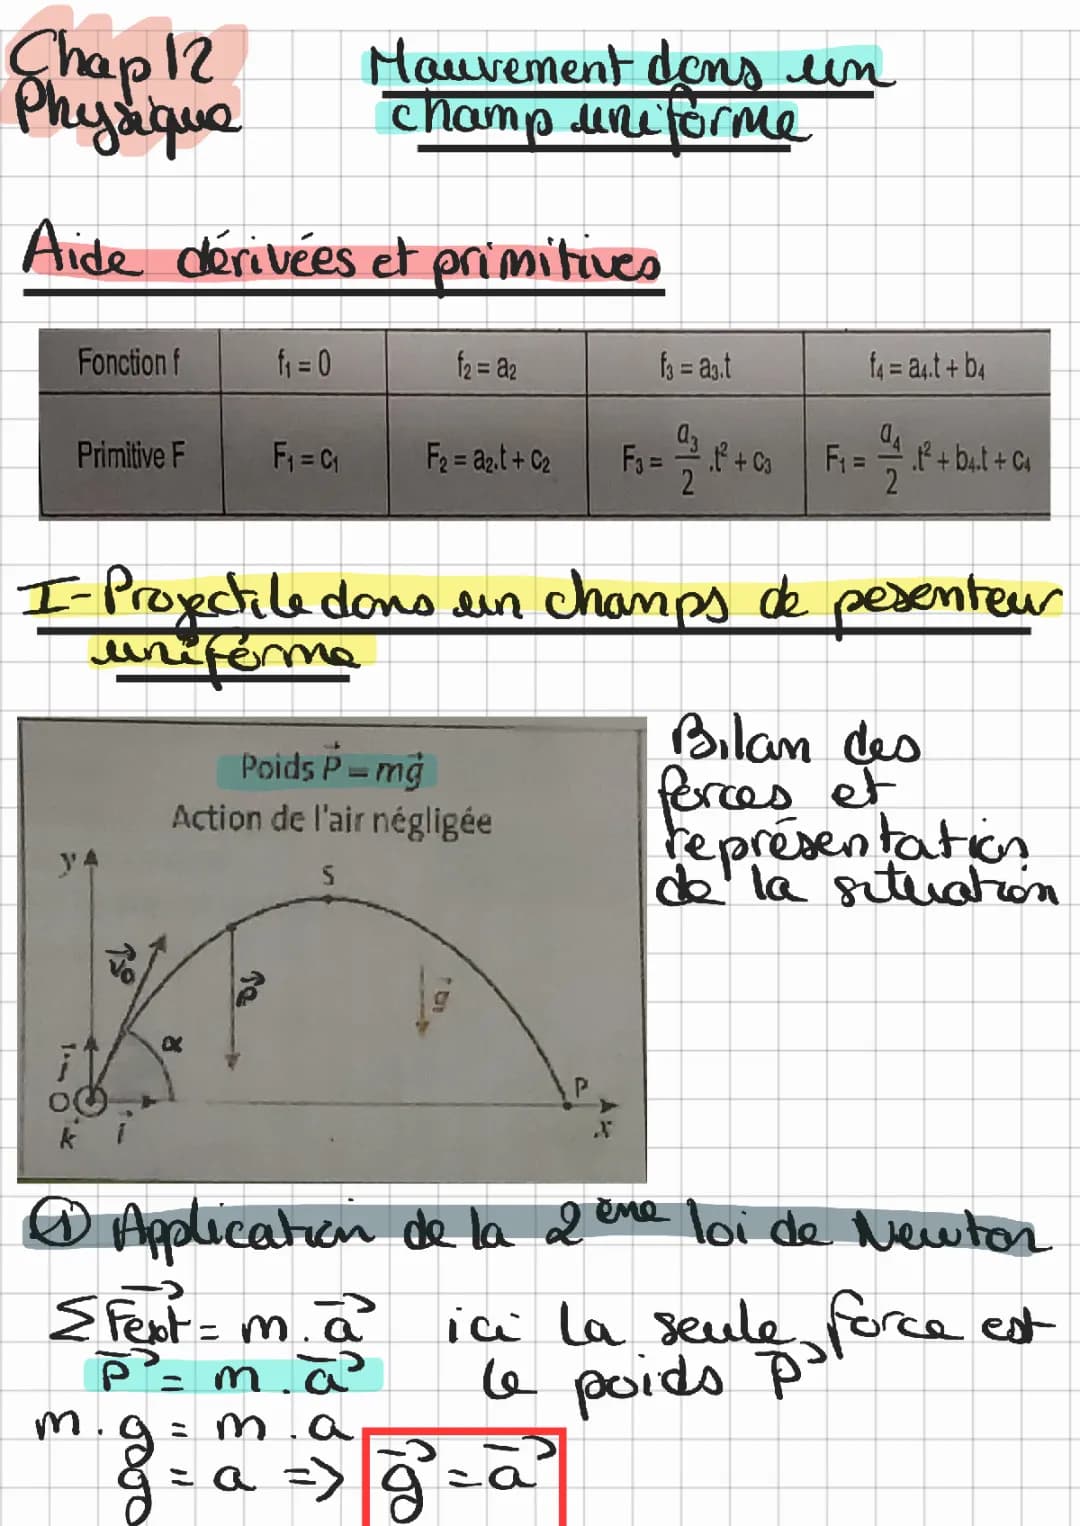 Chap 12
Physique
Mouvement dans un
champ uniforme
Aide dérivées et primitives
Fonction f f₁ = 0 f₂ = a₂ f₃ = a₃.t f₄ = a₄.t + b₄
Primitive F F₁ = c₁ F₂ = a₂.t + c₂ F₃ = a₃/2 .t² + c₃ F₁ = a₄/2 .t² + b₄.t + c₄
I- Projectile dans un champs de pesenteur
uniforme
Poids P⃗ = mg⃗
Action de l'air négligée
y
S
v⃗₀
P⃗
g⃗
α
j⃗
O
k⃗
i⃗
P
x
Bilan des
forces et
représentation
de la situation
① Application de la 2ème loi de Newton
Σ F⃗ext = m . a⃗ ici la seule force est
P⃗ = m . a⃗ le poids P⃗
m . g = m . a
g = a => g⃗ = a⃗